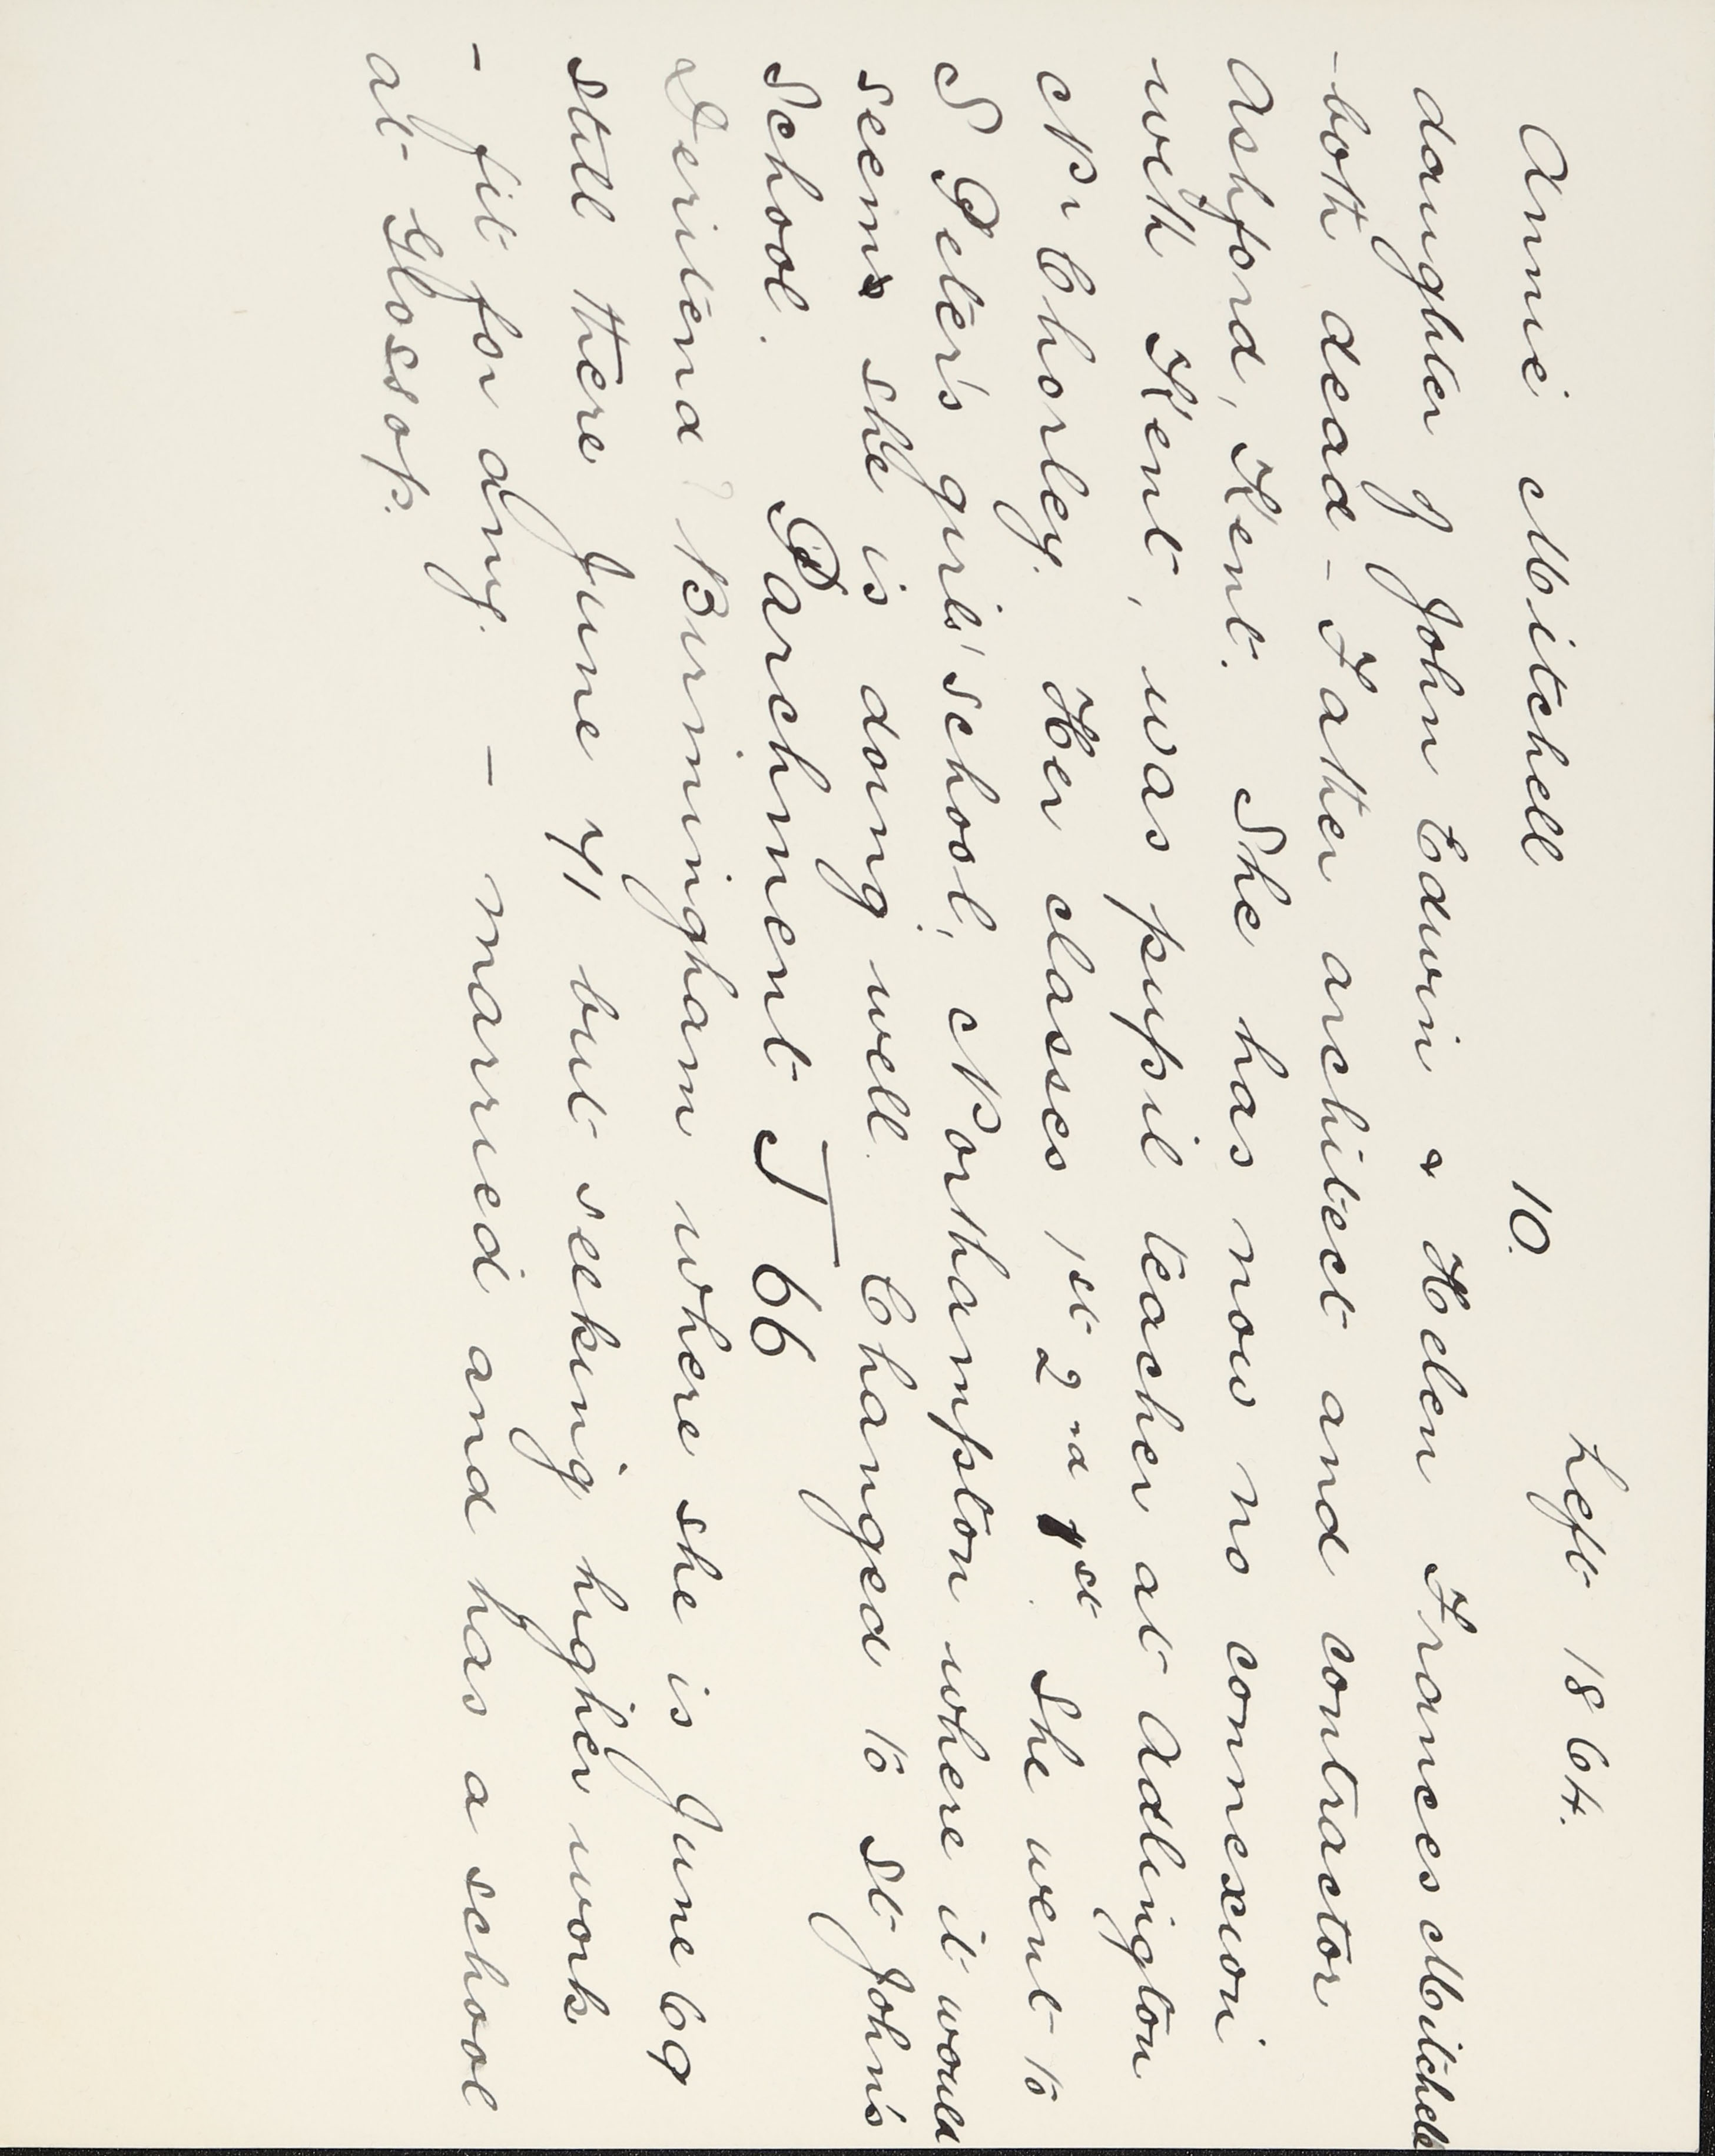 Left 1864.
Annie Mitchell 10.
daughter of John Edwin & Helen Frances Mitchell
- both dead - Father architect and contractor
Ashford, Kent. She has now no connexion
with Kent, was pupil teacher at Adlington
Nr Chorley. Her classes 1st 2nd 1st. She went to
S Peter's girls' school, Northampton where it would
seems she is doing well. Changed to St John's
School. Parchment J 66
Deritend? Birmingham where she is June 69
still there June 71 but seeking higher work
- fit for any. - married and has a school
at Glossop.